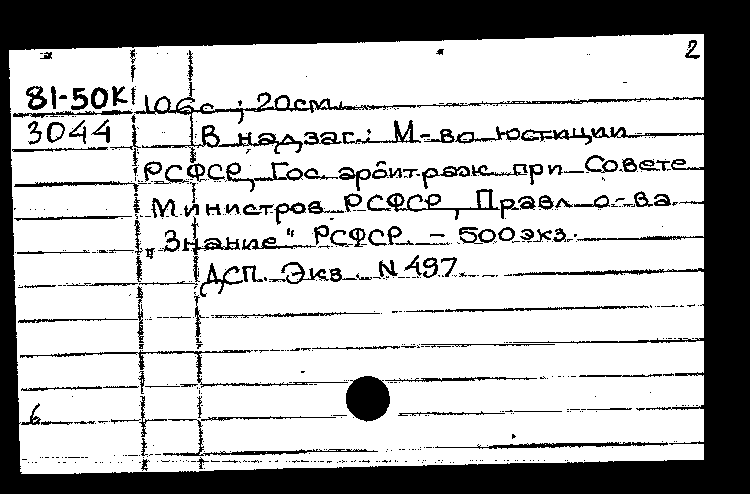 2
81-50К 106с ; 20см.
3044 В надзаг.: М-во юстиции
РСФСР, Гос. арбитраж при Совете
Министров РСФСР, Правл. о-ва
„Знание“ РСФСР. – 500экз.
ДСП. Экз. N 497.
6